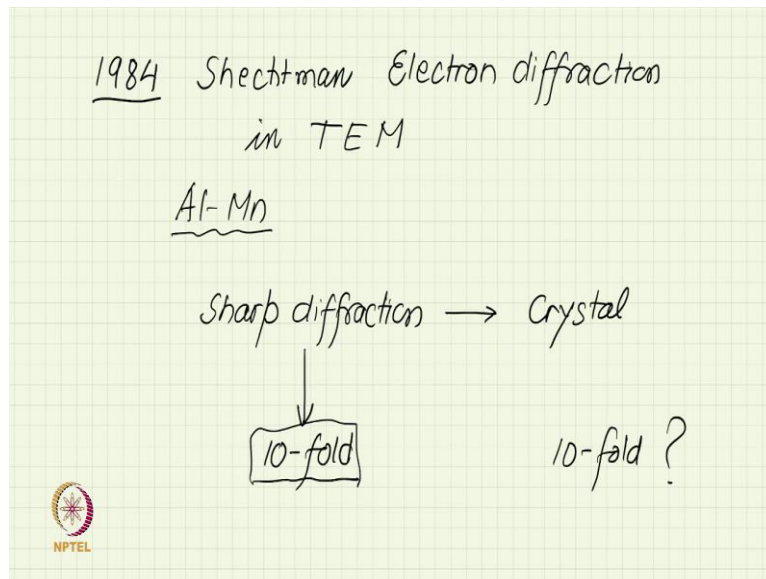 1984 Shechtman Electron diffraction
in TEM
Al-Mn
Sharp diffraction → Crystal
10-fold 10-fold ?
NPTEL